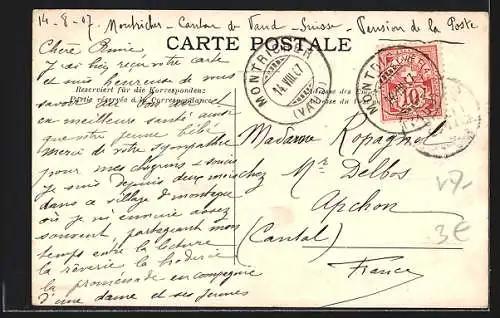 14-8-07 Montricher - Canton de Vaud - Suisse - Pension de la Poste
CARTE POSTALE
Chère Amie
J'ai bien reçu votre carte
et suis heureuse de vous
savoir
Reserviert für die Korrespondenz:
Partie réservée à la Correspondance:
en meilleure santé ainsi
que votre jeune bébé.
Merci de votre sympathie
pour mes chagrins
Je suis depuis deux mois
dans ce village de montagne
où je
souvent, partageant mon
temps entre la lecture
la rêverie la broderie
la promenade en compagnie
d'une dame et ses jeunes
MONTRICHER
14.VIII.07
(VAUD)
Madame Ropagnol
chez Mr Delbos
Apchon
(Cantal)
France
10
v7-
3€